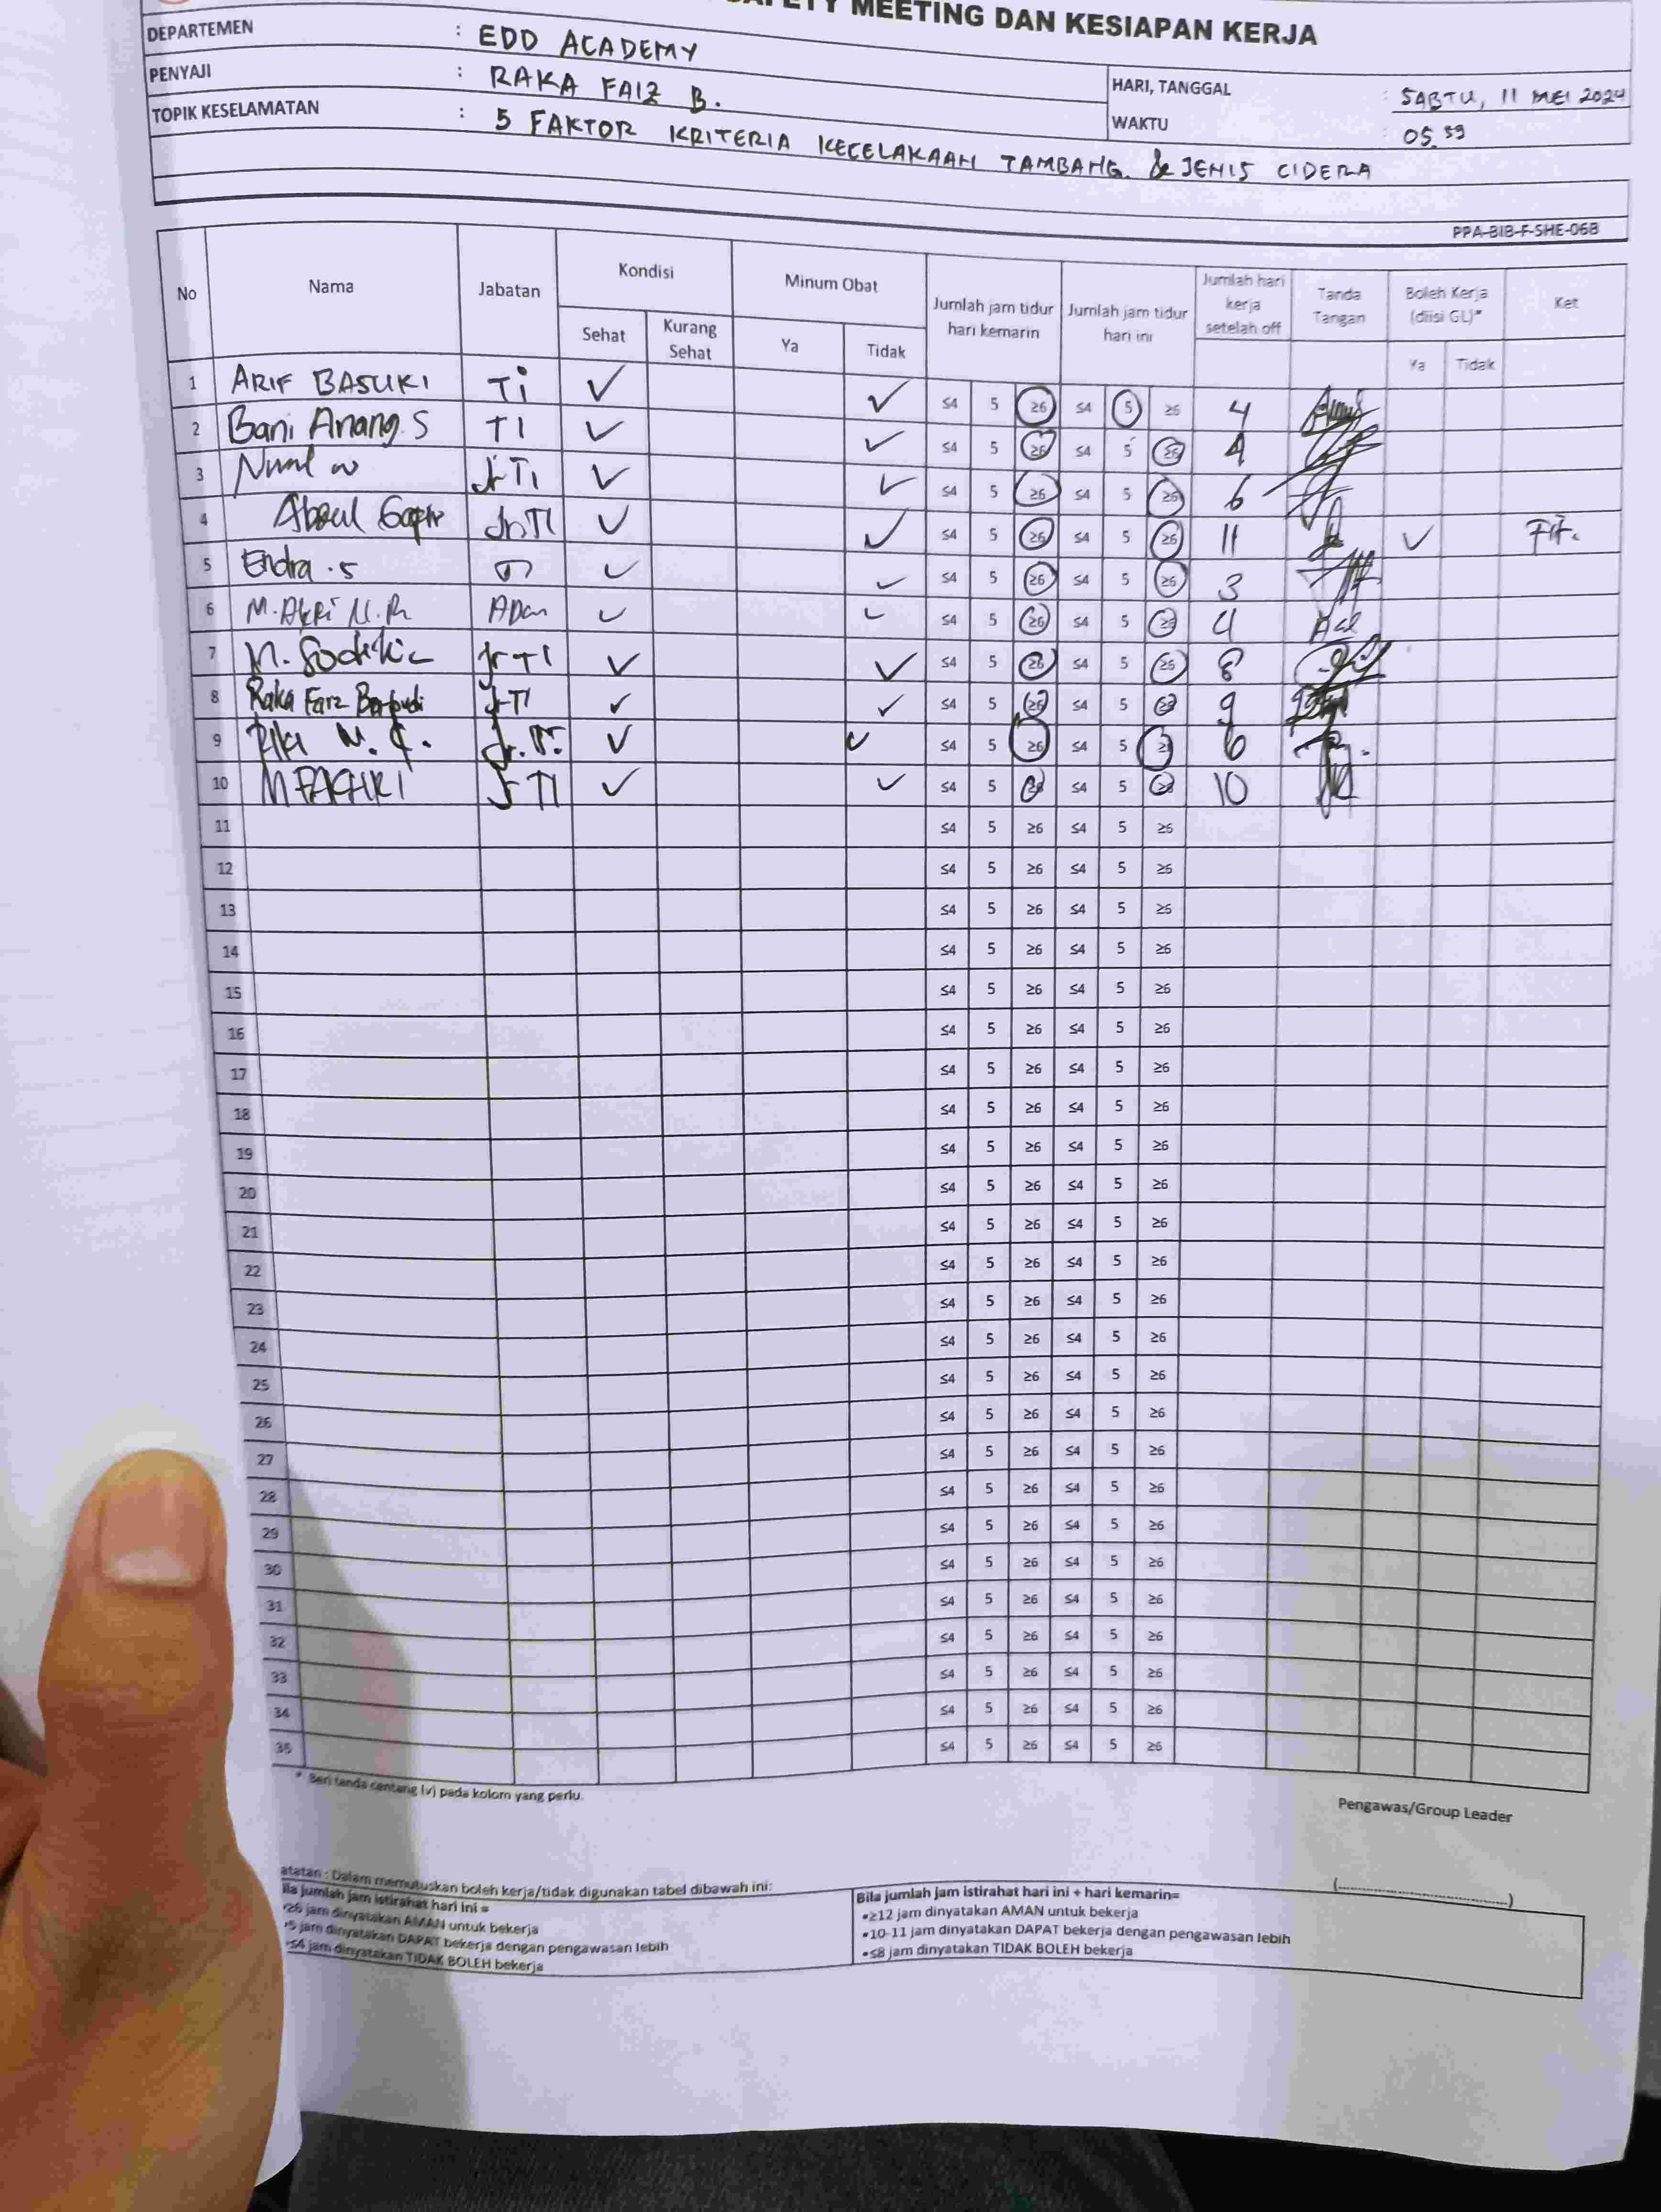 MEETING DAN KESIAPAN KERJA
DEPARTEMEN : EDD ACADEMY
PENYAJI : RAKA FAIZ B.
HARI, TANGGAL : SABTU, 11 MEI 2024
TOPIK KESELAMATAN : 5 FAKTOR KRITERIA KECELAKAAN TAMBANG & JENIS CIDERA
WAKTU : 05.59
PPA-BIB-F-SHE-068
No Nama Jabatan Kondisi Minum Obat Jumlah jam tidur hari kemarin Jumlah jam tidur hari ini Jumlah hari kerja setelah off Tanda Tangan Boleh Kerja (diisi GL)* Ket
Sehat Kurang Sehat Ya Tidak Ya Tidak
1 ARIF BASUKI Ti ✓ ✓ ≤4 5 ≥6 ≤4 5 ≥6 4
2 Bani Anang S TI ✓ ✓ ≤4 5 ≥6 ≤4 5 ≥6 4
3 Jr TI ✓ ✓ ≤4 5 ≥6 ≤4 5 ≥6 6
4 Jr.TI ✓ ✓ ≤4 5 ≥6 ≤4 5 ≥6 11 ✓ Fit.
5 Endra .S ✓ ✓ ≤4 5 ≥6 ≤4 5 ≥6 3
6 ✓ ✓ ≤4 5 ≥6 ≤4 5 ≥6 4
7 M. Sodikin Jr TI ✓ ✓ ≤4 5 ≥6 ≤4 5 ≥6 8
8 Raka Faiz Jr TI ✓ ✓ ≤4 5 ≥6 ≤4 5 ≥6 9
9 ✓ ✓ ≤4 5 ≥6 ≤4 5 ≥6 6
10 M FACHRI Jr TI ✓ ✓ ≤4 5 ≥6 ≤4 5 ≥6 10
11 ≤4 5 ≥6 ≤4 5 ≥6
12 ≤4 5 ≥6 ≤4 5 ≥6
13 ≤4 5 ≥6 ≤4 5 ≥6
14 ≤4 5 ≥6 ≤4 5 ≥6
15 ≤4 5 ≥6 ≤4 5 ≥6
16 ≤4 5 ≥6 ≤4 5 ≥6
17 ≤4 5 ≥6 ≤4 5 ≥6
18 ≤4 5 ≥6 ≤4 5 ≥6
19 ≤4 5 ≥6 ≤4 5 ≥6
20 ≤4 5 ≥6 ≤4 5 ≥6
21 ≤4 5 ≥6 ≤4 5 ≥6
22 ≤4 5 ≥6 ≤4 5 ≥6
23 ≤4 5 ≥6 ≤4 5 ≥6
24 ≤4 5 ≥6 ≤4 5 ≥6
25 ≤4 5 ≥6 ≤4 5 ≥6
26 ≤4 5 ≥6 ≤4 5 ≥6
27 ≤4 5 ≥6 ≤4 5 ≥6
28 ≤4 5 ≥6 ≤4 5 ≥6
29 ≤4 5 ≥6 ≤4 5 ≥6
30 ≤4 5 ≥6 ≤4 5 ≥6
31 ≤4 5 ≥6 ≤4 5 ≥6
32 ≤4 5 ≥6 ≤4 5 ≥6
33 ≤4 5 ≥6 ≤4 5 ≥6
34 ≤4 5 ≥6 ≤4 5 ≥6
35 ≤4 5 ≥6 ≤4 5 ≥6
* Beri tanda centang (v) pada kolom yang perlu.
Pengawas/Group Leader
(..............................)
atatan : Dalam memutuskan boleh kerja/tidak digunakan tabel dibawah ini:
ila jumlah jam istirahat hari ini =
•≥6 jam dinyatakan AMAN untuk bekerja
•5 jam dinyatakan DAPAT bekerja dengan pengawasan lebih
•≤4 jam dinyatakan TIDAK BOLEH bekerja
Bila jumlah jam istirahat hari ini + hari kemarin=
•≥12 jam dinyatakan AMAN untuk bekerja
•10-11 jam dinyatakan DAPAT bekerja dengan pengawasan lebih
•≤8 jam dinyatakan TIDAK BOLEH bekerja